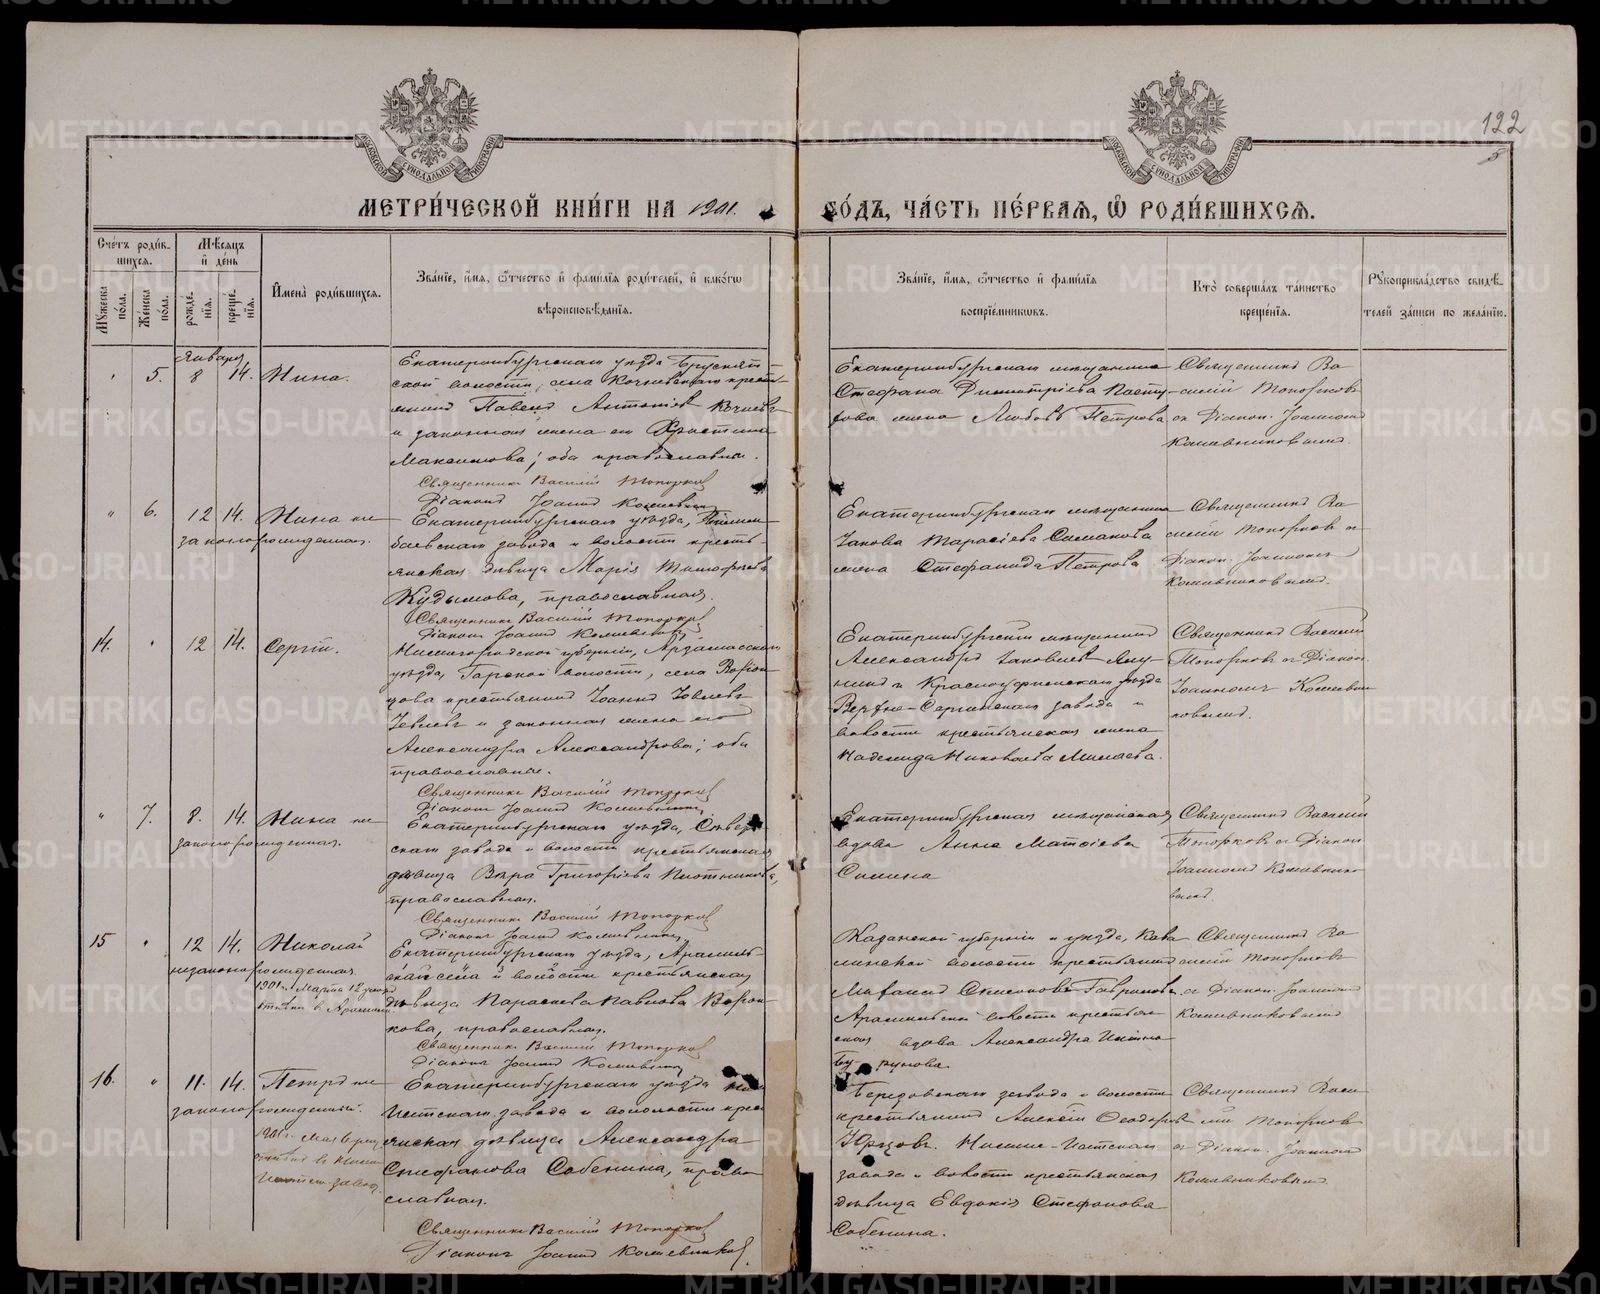 122
5
МЕТРИ́ЧЕСКОЙ КНИ́ГИ НА 1901.
ГО́ДЪ, ЧА́СТЬ ПЕ́РВАЯ, Ѽ РОДИ́ВШИХСЯ.
Сче́тъ роди́в-
шихся.
Му́жеска по́ла.
Же́нска по́ла.
Мѣ́сяцъ
и҆ де́нь
рожде́-
нїя.
креще́-
нїя.
И҆мена̀ роди́вшихся.
Зва́нїе, и҆́мя, ѻ҆́тчество и҆ фами́лїя роди́телей, и҆ како́гѡ
вѣроисповѣ́данїя.
Зва́нїе, и҆́мя, ѻ҆́тчество и҆ фами́лїя
воспрїе́мниковъ.
Кто̀ соверша́лъ та́инство
креще́нїя.
Рꙋкоприкла́дство свидѣ́-
телей за́писи по жела́нїю.
Января
5. 8 14. Нина.
Екатеринбургскаго уѣзда Брусянт-
ской волости, села Кочневскаго кресть-
янинъ Павелъ Антоніевъ Кочневъ
и законная жена его Христина
Максимова; оба православные.
Священникъ Василій Топорковъ
Діаконъ Іоаннъ Кожевниковъ
Екатеринбургскаго мѣщанина
Стефана Димитріева Пасту-
хова жена Любовь Петрова
Священникъ Ва-
силій Топорковъ
съ Діакон. Іоанномъ
Кожевниковымъ.
6. 12 14. Нина не-
законорожденная.
Екатеринбургскаго уѣзда,
баевскаго завода и волости кресть-
янская дѣвица Марія Тимофеева
Кудымова, православная.
Священникъ Василій Топорковъ
Діаконъ Іоаннъ Кожевниковъ
Екатеринбургскаго мѣщанина
Іакова Тарасіева Симанова
жена Стефанида Петрова
Священникъ Ва-
силій Топорковъ съ
Діакон. Іоанномъ
Кожевниковымъ.
14. 12 14. Сергій.
Нижегородской губерніи, Арзамасскаго
уѣзда, волости, села
крестьянинъ Іоаннъ Іовлевъ
Іевлевъ и законная жена его
Александра Александрова; оба
православные.
Священникъ Василій Топорковъ
Діаконъ Іоаннъ Кожевниковъ
Екатеринбургскій мѣщанинъ
Александръ Іаковлевъ Яку-
нинъ и Красноуфимскаго уѣзда
Верхне-Сергинскаго завода и
волости крестьянская жена
Надежда Николаева Минаева.
Священникъ Василій
Топорковъ съ Діакон.
Іоанномъ Кожевни-
ковымъ.
7. 8. 14. Нина не-
законорожденная.
Екатеринбургскаго уѣзда, Сысерт-
скаго завода и волости крестьянская
дѣвица Вѣра Григоріева Плотникова,
православная.
Священникъ Василій Топорковъ
Діаконъ Іоаннъ Кожевниковъ
Екатеринбургская мѣщанская
вдова Анна Матфіева
Силина
Священникъ Василій
Топорковъ съ Діакон.
Іоанномъ Кожевнико-
вымъ.
15 12 14. Николай
незаконорожденный.
1901 г. Марта 12
Екатеринбургскаго уѣзда, Арамиль-
скаго села и волости крестьянская
дѣвица Параскева Павлова Ворон-
кова, православная.
Священникъ Василій Топорковъ
Діаконъ Іоаннъ Кожевниковъ
Казанской губерніи и уѣзда, Кава-
линской волости крестьянинъ
Михаилъ Симеоновъ Гавриловъ.
Арамильской волости крестьян-
ская вдова Александра
Священникъ Ва-
силій Топорковъ
съ Діакон. Іоанномъ
Кожевниковымъ
16. 11. 14. Петръ не-
законорожденный.
Екатеринбургскаго уѣзда Ниж-
Исетскаго завода и волости крес-
янская дѣвица Александра
Стефанова Собенина, право-
славная.
Священникъ Василій Топорковъ
Діаконъ Іоаннъ Кожевниковъ.
Березовскаго завода и волости
крестьянинъ Алексій Ѳеодоровъ
Юрцовъ. Нижне-Исетскаго
завода и волости крестьянская
дѣвица Евдокія Стефанова
Собенина.
Священникъ Васи-
лій Топорковъ
съ Діакон. Іоанномъ
Кожевниковымъ.
METRIKI.GASO-URAL.RU